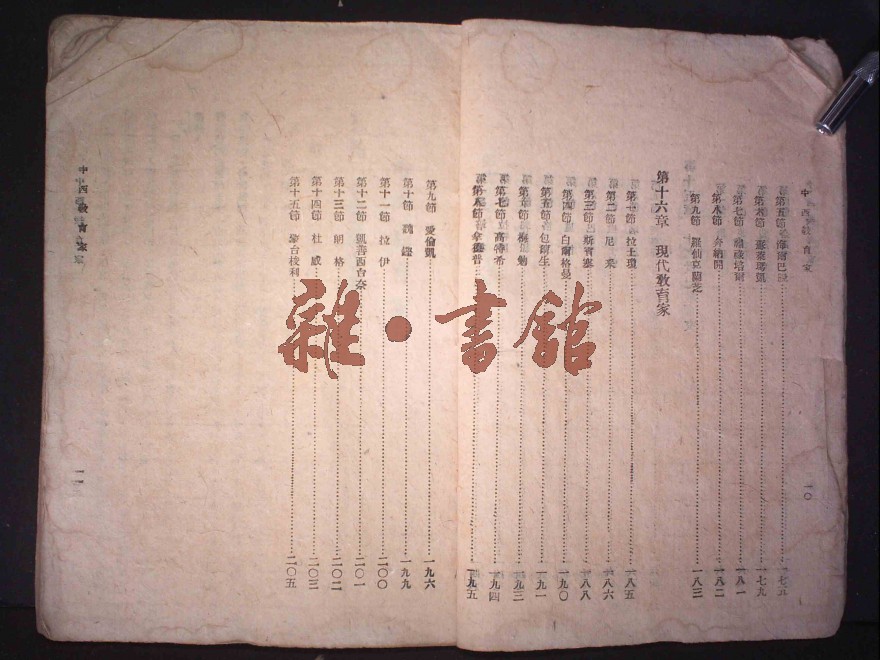 中西教育家
第五節 海爾巴脫 一七五
第六節 一七九
第七節 福祿培爾 一八一
第八節 奔納開 一八二
第九節 羅仙克蘭芝 一八三
第十六章 現代教育家
第一節 拉士瓊 一八五
第二節 尼采 一八六
第三節 斯賓塞 一八八
第四節 白爾格曼 一九〇
第五節 包爾生 一九一
第六節 一九三
第七節 高特希 一九四
第八節 拿多普 一九五
一〇
第九節 愛倫凱 一九六
第十節 一九九
第十一節 拉伊 二〇〇
第十二節 凱善西台奈 二〇一
第十三節 朗格 二〇二
第十四節 杜威 二〇三
第十五節 蒙台梭利 二〇五
中西教育家
一一
雜·書館